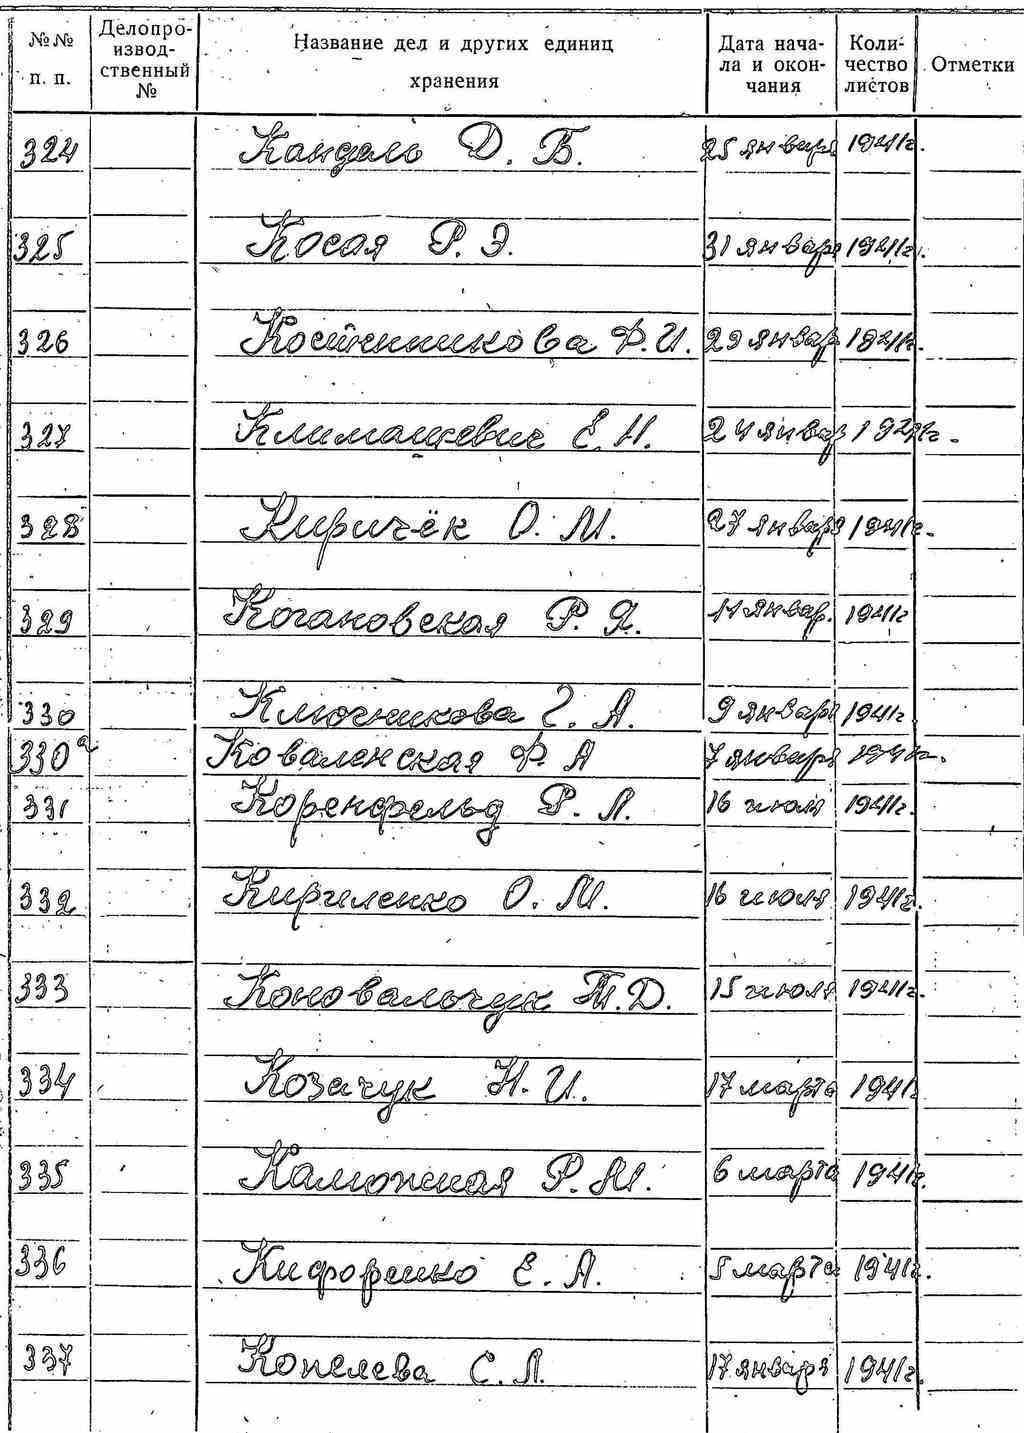 №№ п. п.
Делопроизводственный №
Название дел и других единиц хранения
Дата начала и окончания
Количество листов
Отметки
324 Кандель Д. Б. 25 января 1941г.
325 Косая Р. Э. 31 января 1941г.
326 Ф.И. 29 январ 1941г.
327 Климашевич Е.Н. 24 январ 1941г.
328 Киричёк О. М. 27 января 1941г.
329 Когановская Р. Я. 11 январ. 1941г
330 Ключникова Г. А. 9 января 1941г
330а Коваленская Ф. А 7 января 1941г.
331 Коренфельд Р. Л. 16 июля 1941г.
332 Кириленко О. М. 16 июля 1941г.
333 Коновальчук Т.Д. 15 июля 1941г.
334 Козачук Н. И. 17 марта 1941г
335 Р. М. 6 марта 1941г.
336 Кифоренко Е. А. 5 марта 1941г.
337 Копелева С. Л. 17 января 1941г.